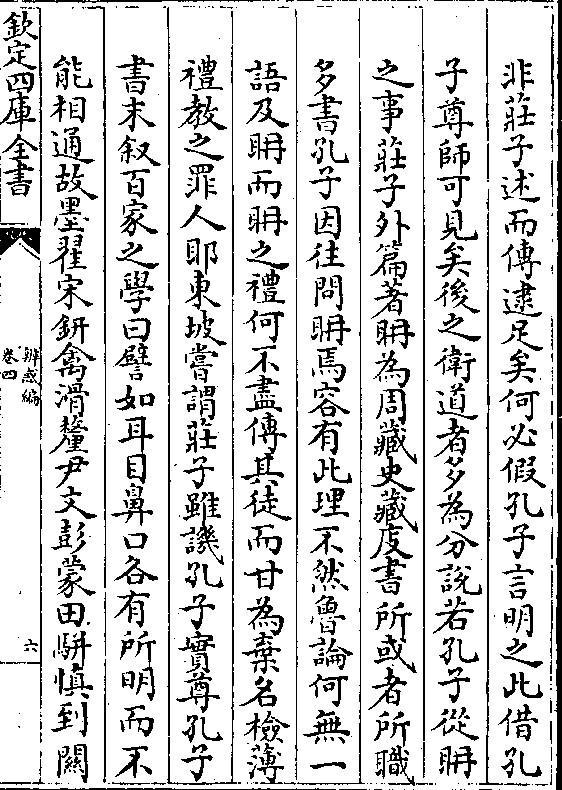 非莊子述而傳逮足矣何必假孔子言明之此借孔
子尊師可見矣後之衛道者多為分說若孔子從聃
之事莊子外篇著聃為周藏史藏庋書所或者所職
多書孔子因往問聃焉容有此理不然魯論何無一
語及聃而聃之禮何不盡傳其徒而甘為棄名檢薄
禮教之罪人耶東坡嘗謂莊子雖譏孔子實尊孔子
書末叙百家之學曰譬如耳目鼻口各有所明而不
能相通故墨翟宋鈃禽滑釐尹文彭蒙田駢慎到關
欽定四庫全書
辨惑編
卷四
六